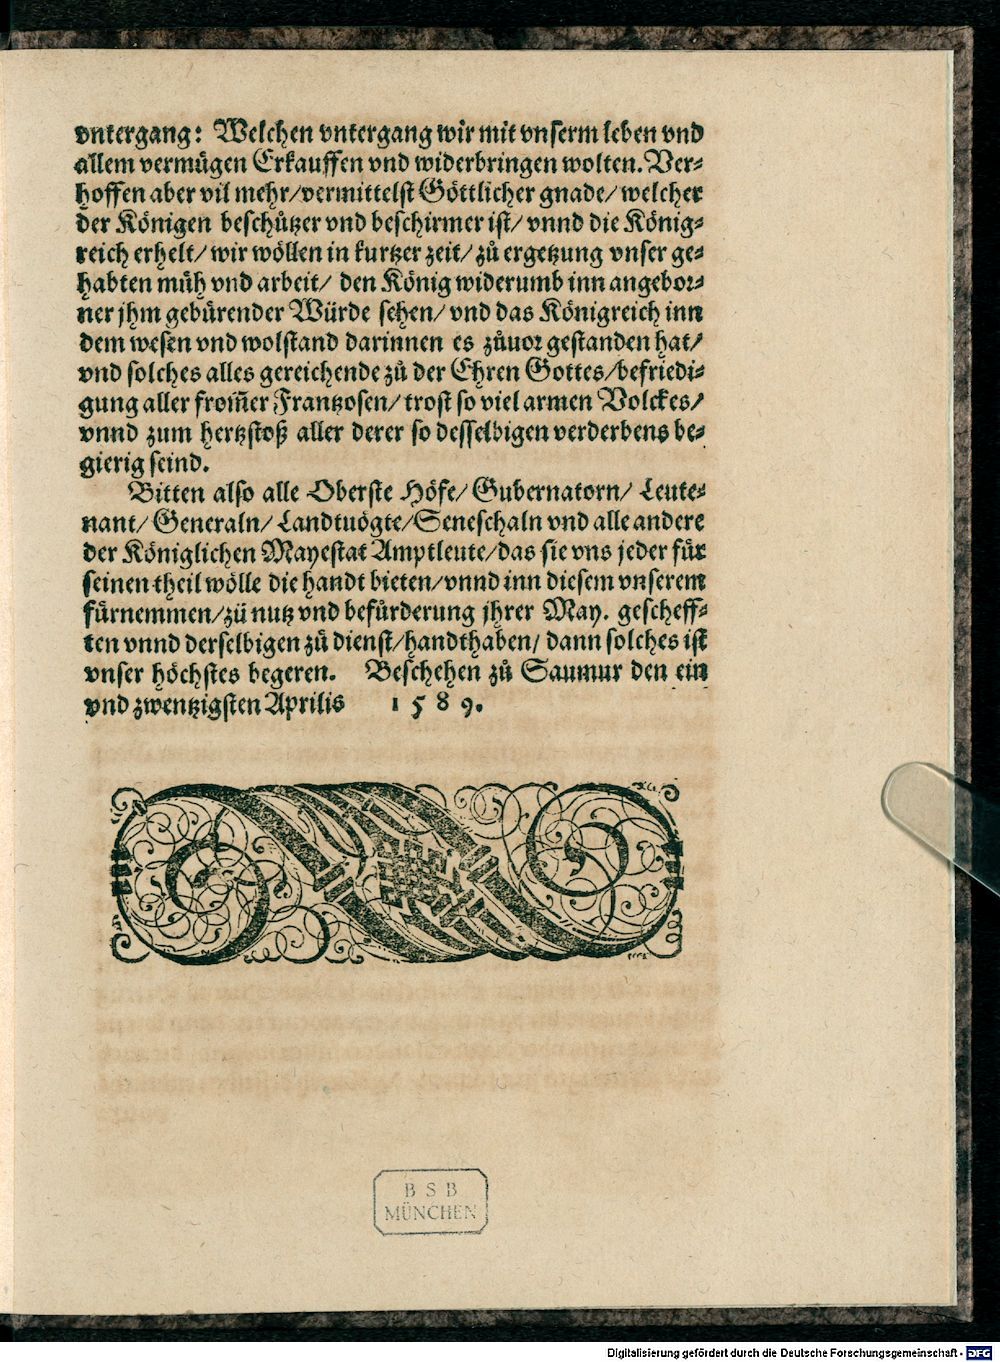 vntergang: Welchen vntergang wir mit vnserm leben vnd
allem vermügen Erkauffen vnd widerbringen wolten. Ver⸗
hoffen aber vil mehr/vermittelst Göttlicher gnade/ welcher
der Königen beschützer vnd beschirmer ist/ vnnd die König⸗
reich erhelt/ wir wöllen in kurtzer zeit/ zů ergetzung vnser ge⸗
habten müh vnd arbeit/ den König widerumb inn angebor⸗
ner jhm gebürender Würde sehen/ vnd das Königreich inn
dem wesen vnd wolstand darinnen es zůuor gestanden hat/
vnd solches alles gereichende zů der Ehren Gottes/befriedi⸗
gung aller from̃er Frantzosen/ trost so viel armen Volckes/
vnnd zum hertzstoß aller derer so desselbigen verderbens be⸗
gierig seind.
Bitten also alle Oberste Höfe/ Gubernatorn/ Leute⸗
nant/ Generaln/ Landtuögte/ Seneschaln vnd alle andere
der Königlichen Mayestat Amptleute/das sie vns jeder für
seinen theil wölle die handt bieten/vnnd inn diesem vnserem
fürnemmen/zü nutz vnd befürderung jhrer May. gescheff⸗
ten vnnd derselbigen zů dienst/handthaben/ dann solches ist
vnser höchstes begeren. Beschehen zů Saumur den ein
vnd zwentzigsten Aprilis 1589.
BSB
MÜNCHEN
Digitalisierung gefördert durch die Deutsche Forschungsgemeinschaft - DFG